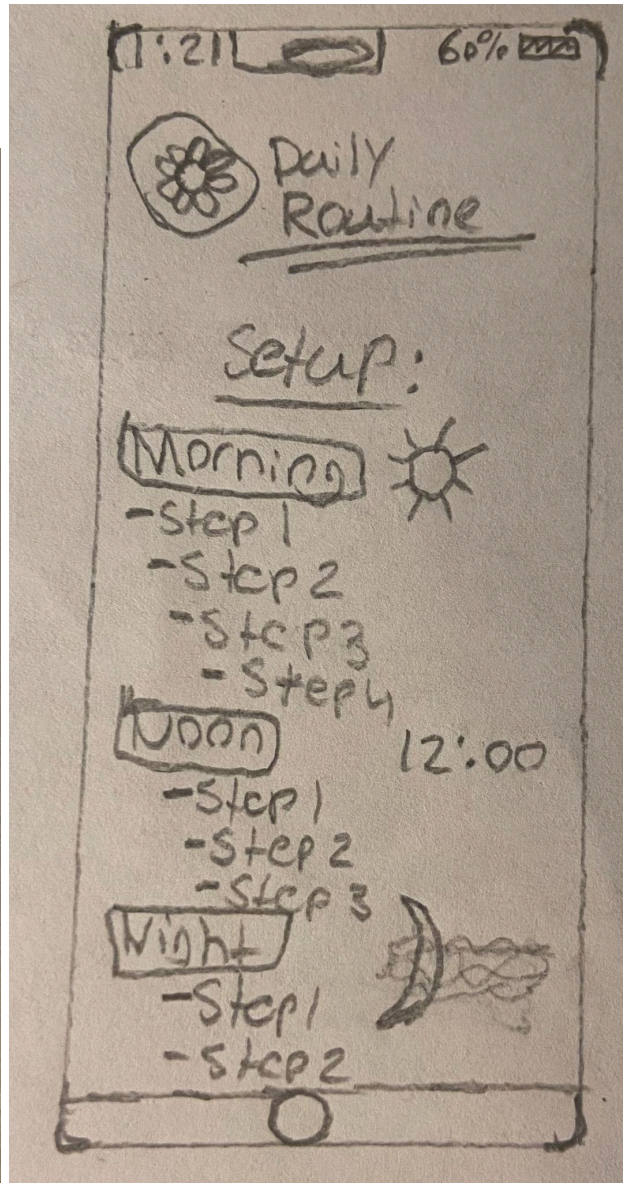 1:21 60%
Daily
Routine
Setup:
Morning
-Step 1
-Step 2
-Step 3
-Step 4
Noon 12:00
-Step 1
-Step 2
-Step 3
Night
-Step 1
-Step 2